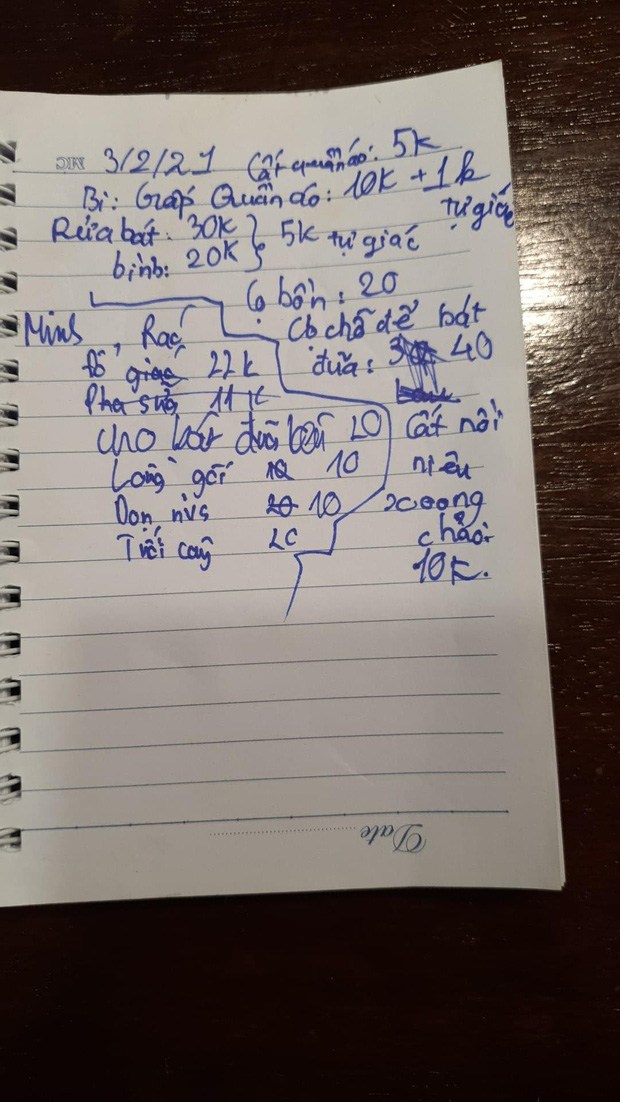 3/2/21 Cất quần áo: 5k
Bi: Gấp Quần áo: 10k + 1k
tự giác
Rửa bát: 30k } 5k tự giác
bình: 20k
Cọ bồn: 20
Minh
Rác
Cọ chỗ để bát
Đổ giác 22k
đũa: 40
Pha sữa 11k
cho bát đũa
20
Cất nồi
Lồng gối 10 10
niêu
Dọn nvs 20 10
xoong
Tưới cây 20
chảo:
10k.
Date